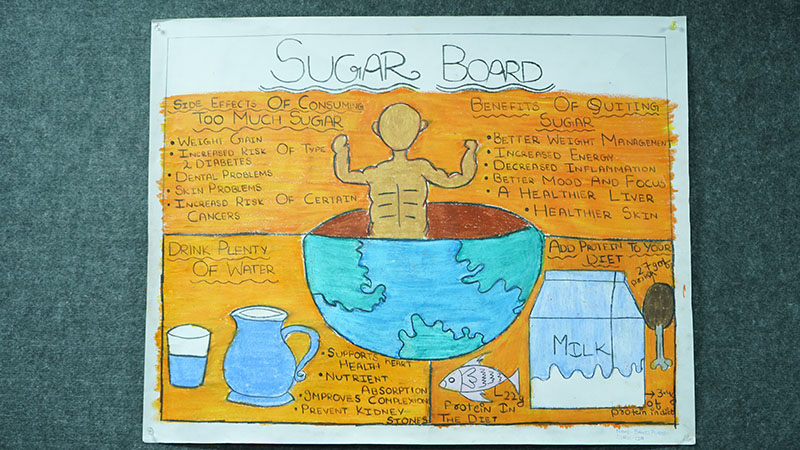 SUGAR BOARD
SIDE EFFECTS OF CONSUMING
TOO MUCH SUGAR
• WEIGHT GAIN
• INCREASED RISK OF TYPE
2 DIABETES
• DENTAL PROBLEMS
• SKIN PROBLEMS
• INCREASD RISK OF CERTAIN
CANCERS
BENEFITS OF QUITING
SUGAR
• BETTER WEIGHT MANAGEMENT
• INCREASED ENERGY
• DECREASED INFLAMMATION
• BETTER MOOD AND FOCUS
• A HEALTHIER LIVER
• HEALTHIER SKIN
DRINK PLENTY
OF WATER
• SUPPORTS HEART
HEALTH
• NUTRIENT
ABSORPTION
• IMPROVES COMPLEXION
• PREVENT KIDNEY
STONES
ADD PROTEIN TO YOUR
DIET
27g of
MILK
22g
Protein In
The Diet
3.4
of
protein in